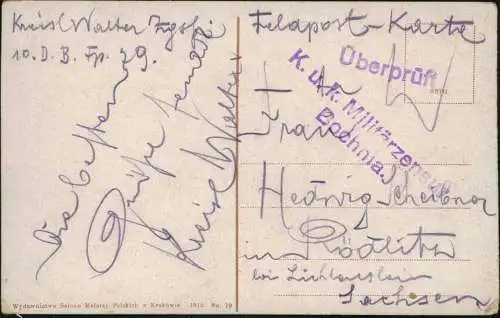 Kreisl Walter
10. D. B. Fp. 79.
Die besten
Grüße sendet
Kreisl Walter
Feldpost-Karte
Überprüft
K. u. k. Militärzensur
Bochnia.
Frau
Hedwig Scheibner
in Rödlitz
bei Lichtenstein
Sachsen
Wydawnictwo Salonu Malarzy Polskich w Krakowie 1915 No. 19